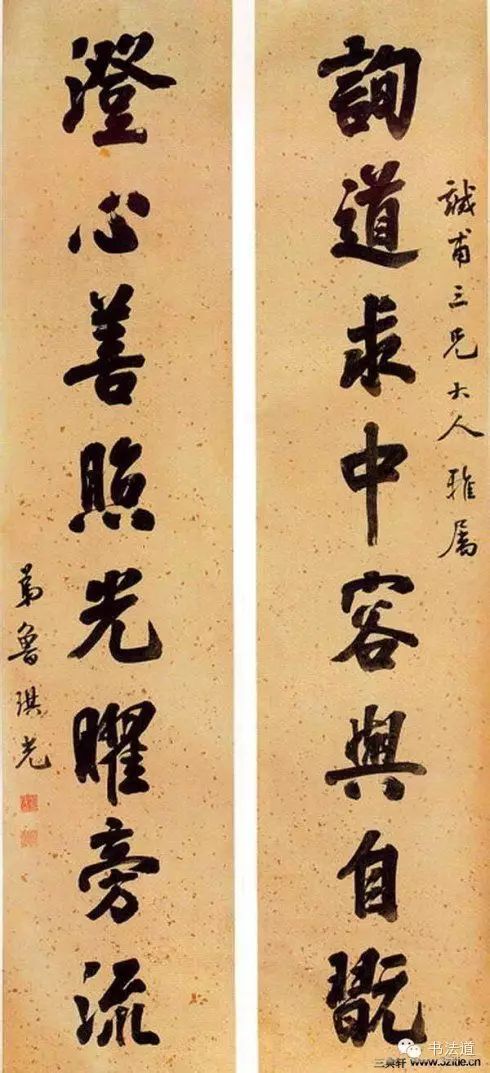 誠甫三兄大人雅屬
詢道求中容與自翫
澄心善照光曜旁流
弟魯琪光
书法道
www.3zitie.cn